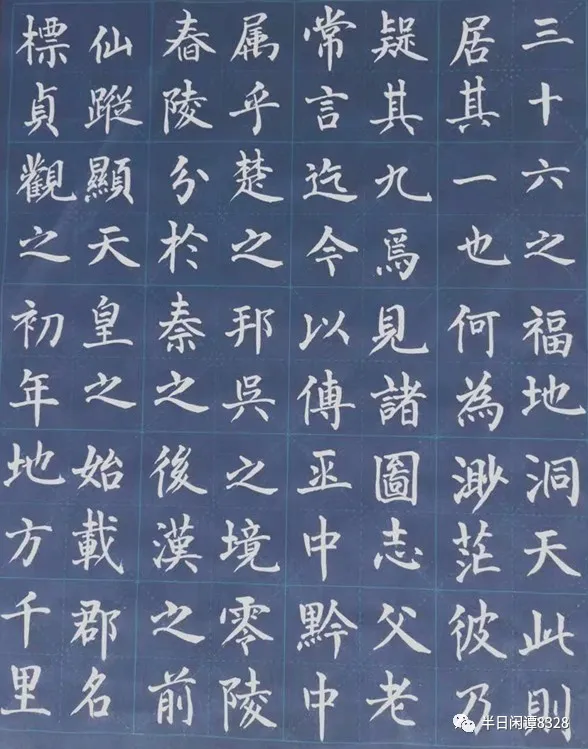 三十六之福地洞天此則
居其一也何為渺茫彼乃
疑其九焉見諸圖志父老
常言迄今以傳巫中黔中
属乎楚之邦吳之境零陵
舂陵分於秦之後漢之前
仙蹤顯天皇之始載郡名
標貞觀之初年地方千里
半日闲谭8328